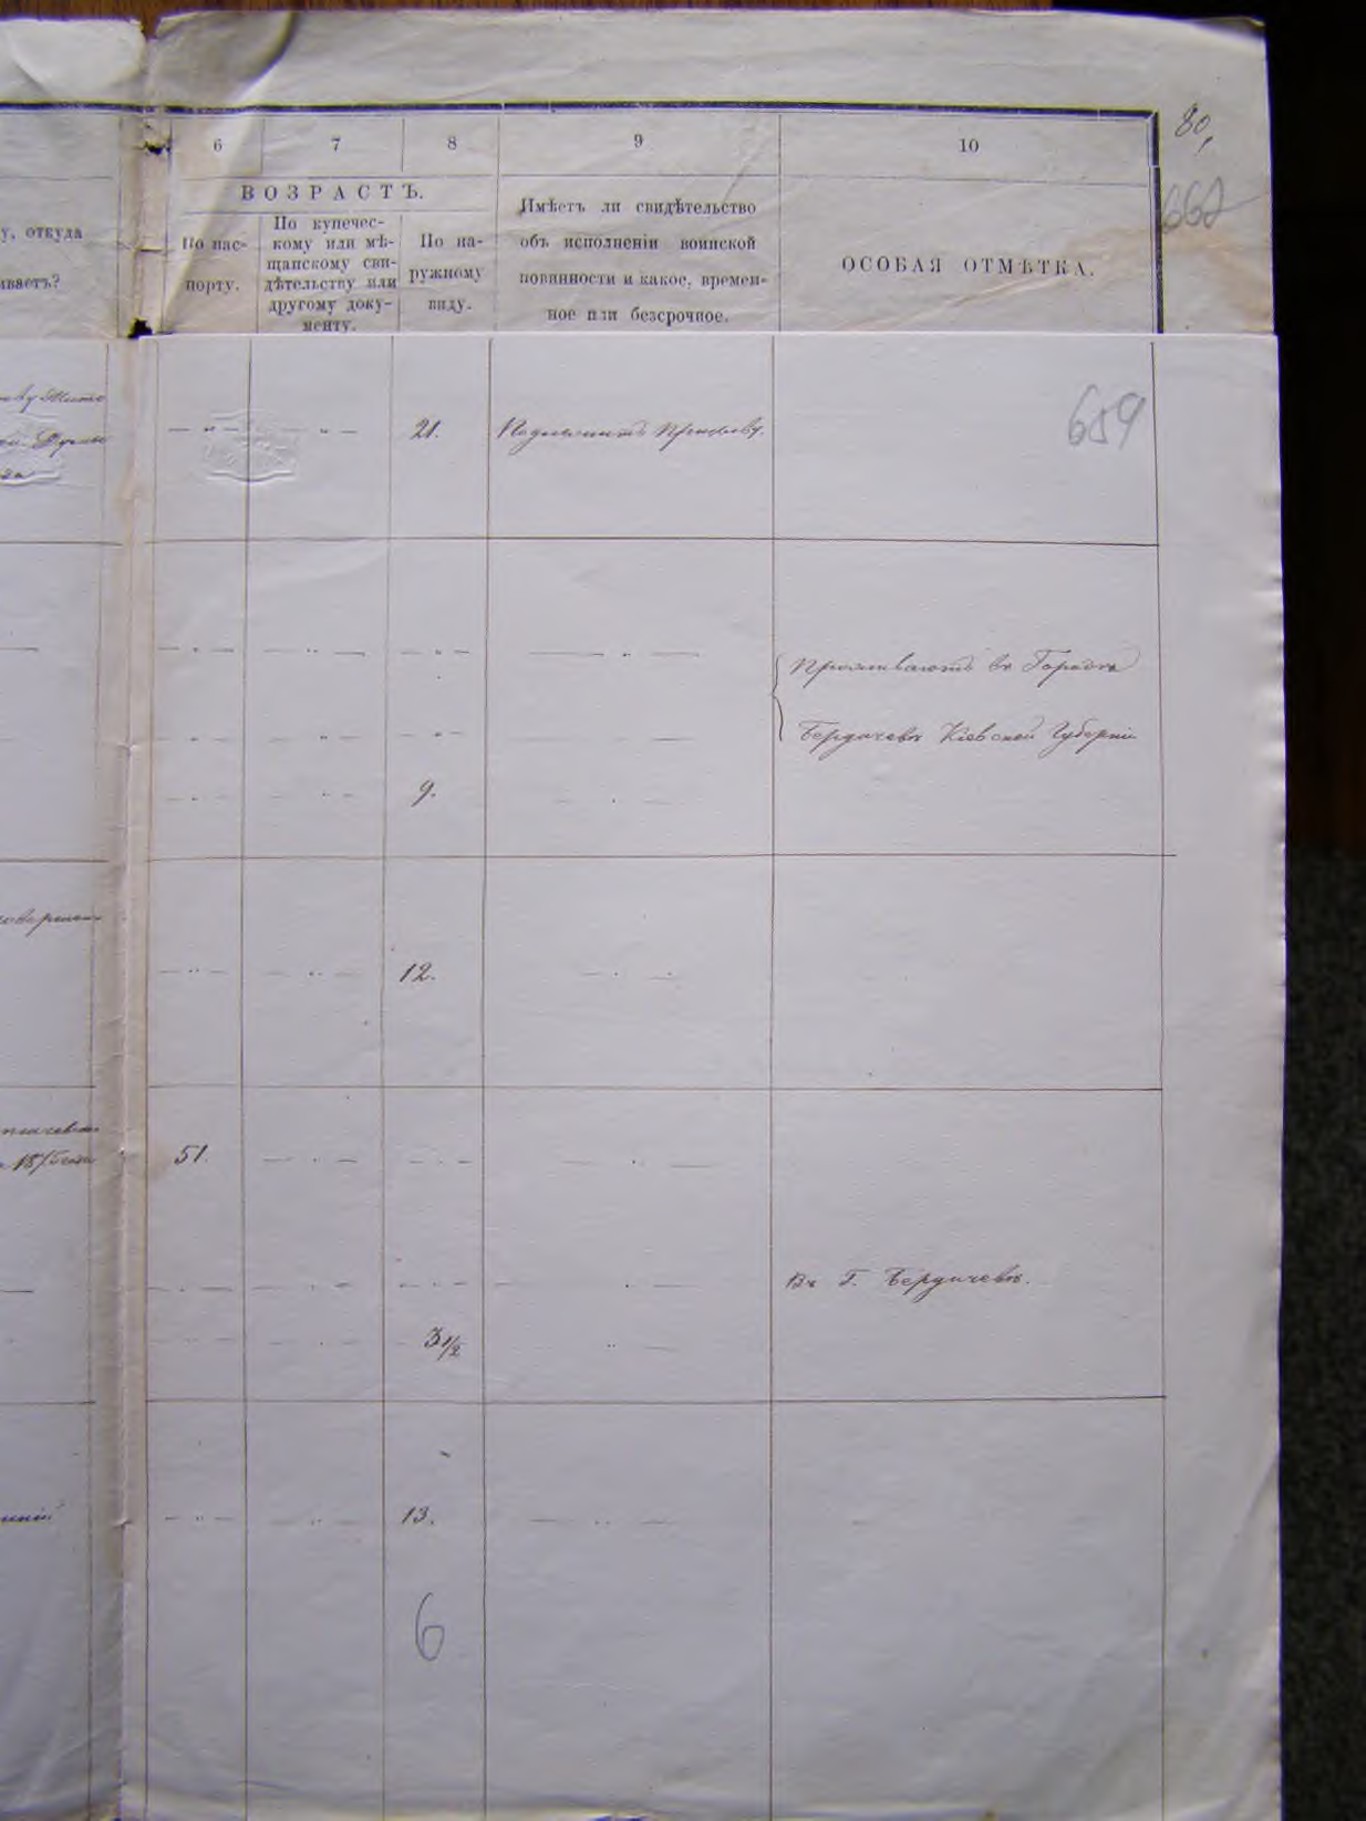 80,
6 7 8 9 10
ВОЗРАСТЪ.
у, откуда
иваетъ?
По пас-
порту.
По купечес-
кому или мѣ-
щанскому сви-
дѣтельству или
другому доку-
менту.
По на-
ружному
виду.
Имѣетъ ли свидѣтельство
объ исполненіи воинской
повинности и какое, времен-
ное или безсрочное.
ОСОБАЯ ОТМѢТКА.
659
21. Подлежитъ Призыву.
Проживаютъ въ Городѣ
Бердичевѣ Кіевской Губерніи
9.
12.
51.
Въ Г. Бердичевѣ.
3 1/2
13.
6